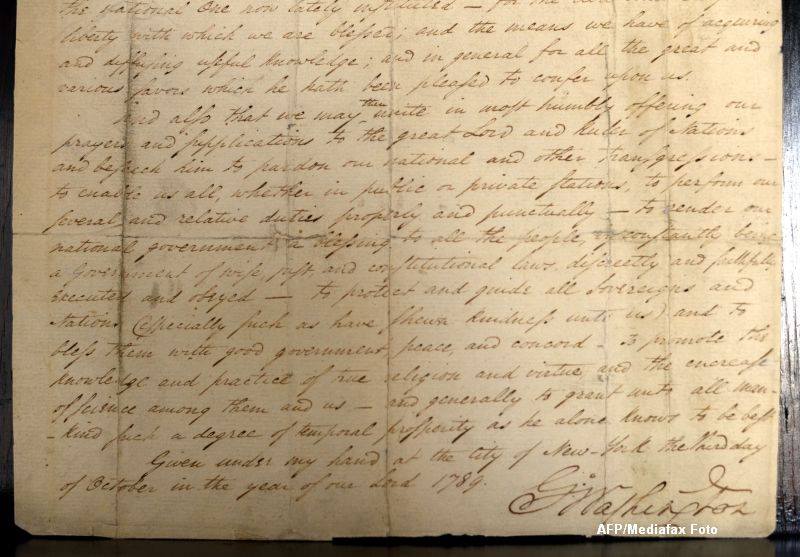 the national One now lately instituted — for the
liberty with which we are blessed; and the means we have of acquiring
and diffusing useful knowledge; and in general for all the great and
various favors which he hath been pleased to confer upon us.
And also that we may then unite in most humbly offering our
prayers and supplications to the great Lord and Ruler of Nations
and beseech him to pardon our national and other transgressions —
to enable us all, whether in public or private stations, to perform our
several and relative duties properly and punctually — to render our
national government a blessing to all the people, by constantly being
a Government of wise, just, and constitutional laws, discreetly and faithfully
executed and obeyed — to protect and guide all Sovereigns and
Nations (especially such as have shewn kindness unto us) and to
bless them with good government, peace, and concord — To promote the
knowledge and practice of true religion and virtue, and the encrease
of science among them and us — and generally to grant unto all man-
-kind such a degree of temporal prosperity as he alone knows to be best.
Given under my hand at the City of New-York the third day
of October in the year of our Lord 1789.
Go: Washington
AFP/Mediafax Foto